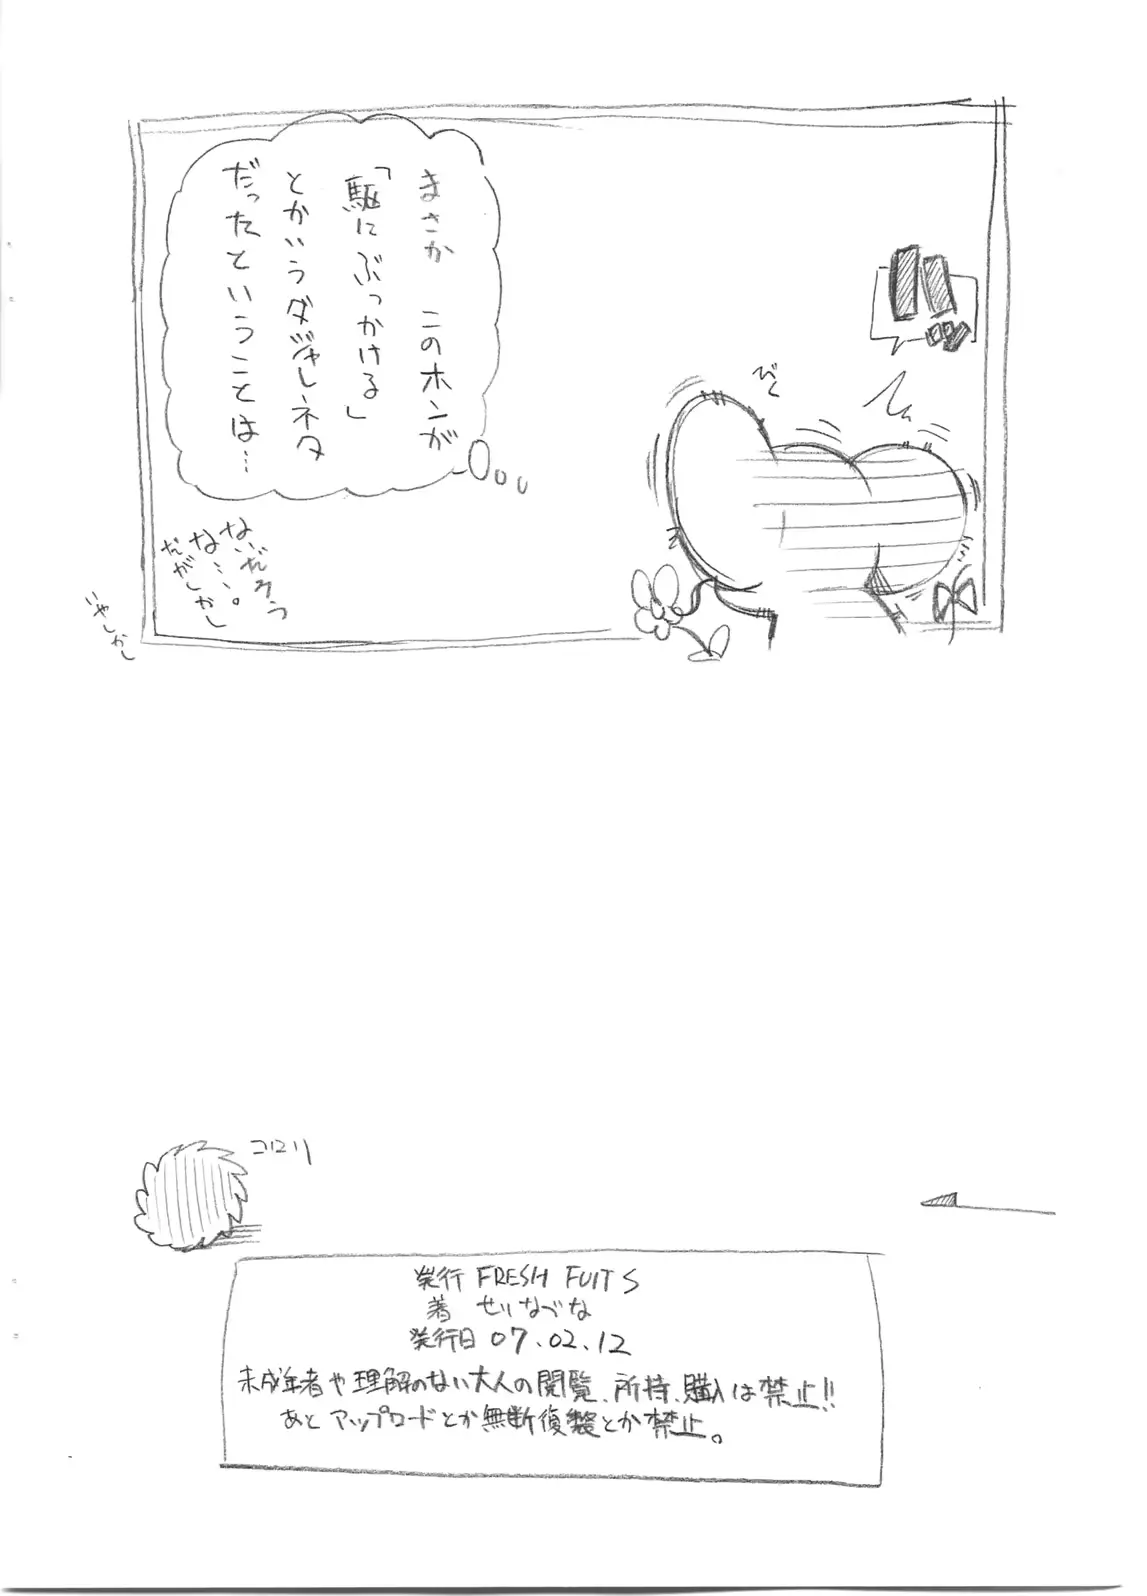 まさか このホンが
「駆にぶっかける」
とかいうダジャレネタ
だったということは…
びく
ないだろう
な…。
だがしかし
いやしかし
コロリ
発行 FRESH FUITS
著 せいなづな
発行日 07.02.12
未成年者や理解のない大人の閲覧、所持、購入は禁止!!
あと アップロードとか無断復製とか禁止。